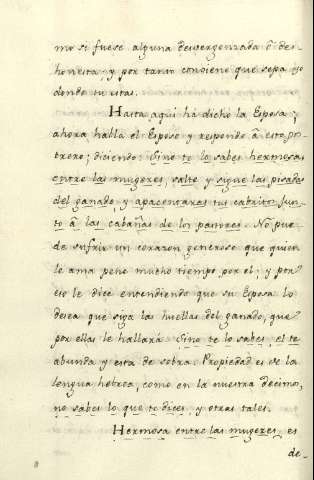 mo si fuese alguna desvergonzada ò des-
honesta, y por tanto conviene que sepa yo
donde tu estas.
Hasta aqui ha dicho la Esposa;
ahora habla el Esposo y responde â este pos-
trero; diciendo: Sino te lo sabes hermosa
entre las mugeres, salte y sigue las pisadas
del ganado y apacentaras tus cabritos jun-
to â las cabañas de los pastores. No pue-
de sufrir un corazon generoso que quien
le ama pene mucho tiempo por el; y por
eso le dice entendiendo que su Esposa lo
desea que siga las huellas del ganado, que
por ellas le hallará. Sino te lo sabes, el te
abunda y esta de sobra. Propiedad es de la
lengua hebrea, como en la nuestra decimos,
no sabes lo que te dices, y otras tales.
Hermosa entre las mugeres, es
de-